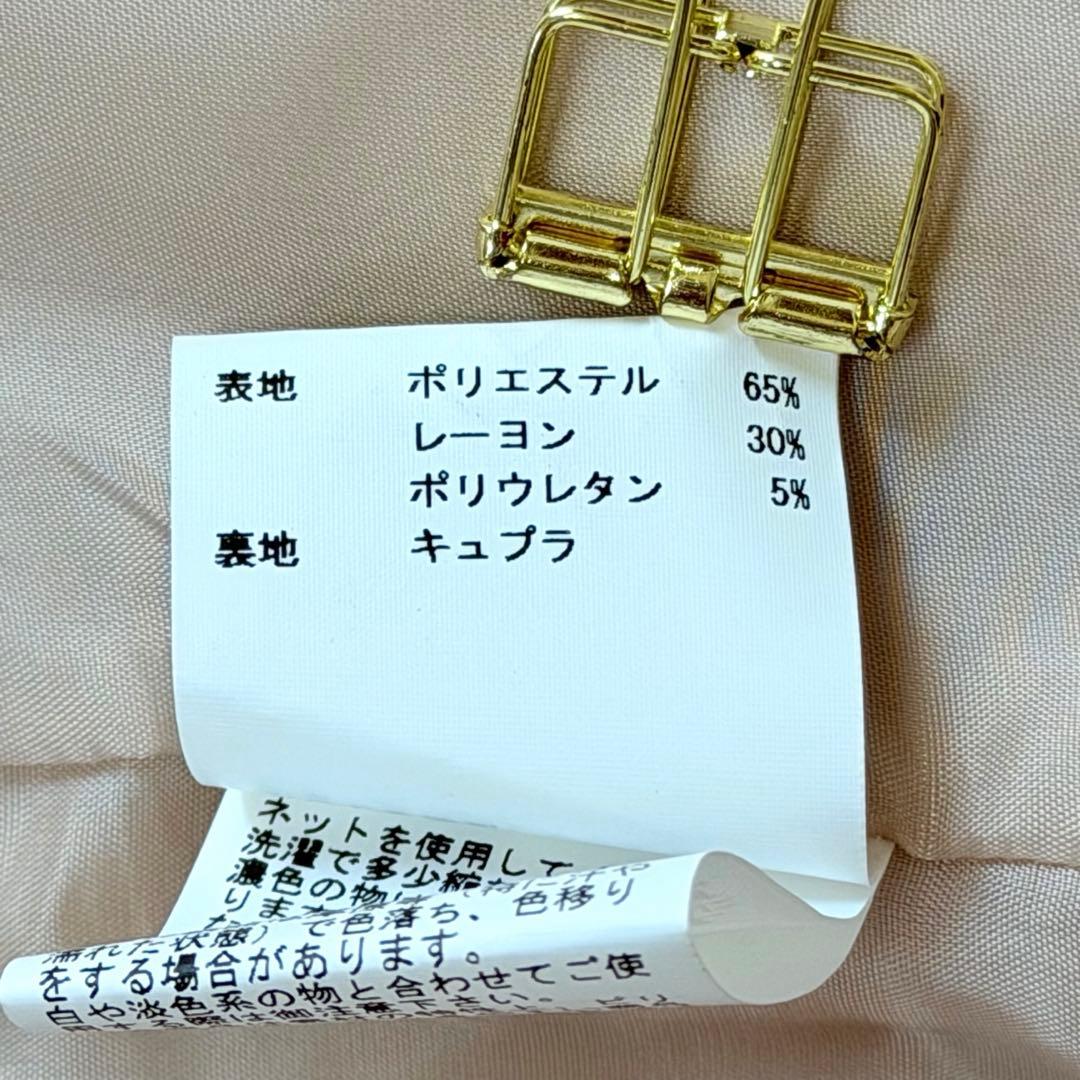 表地 ポリエステル 65%
レーヨン 30%
ポリウレタン 5%
裏地 キュプラ
ネットを使用して
洗濯で多少縮
濃色の物
りま
濡れた状態）で色落ち、色移り
をする場合があります。
白や淡色系の物と合わせてご使